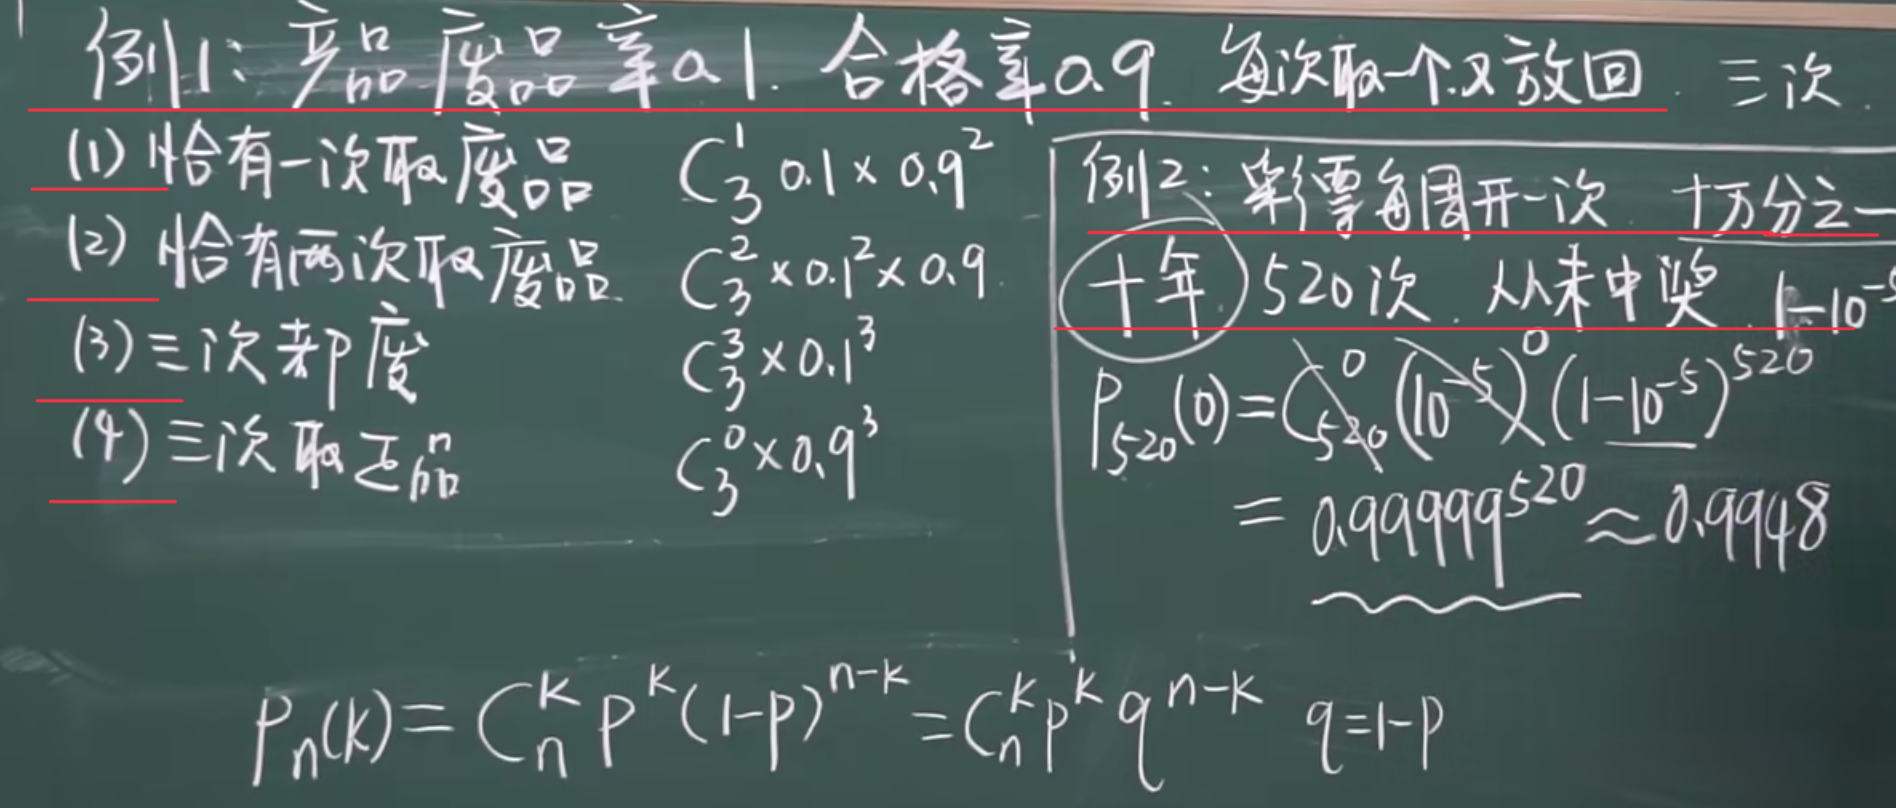 例1: 产品废品率0.1. 合格率0.9. 每次取一个.又放回. 三次.
(1) 恰有一次取废品 C₃¹ 0.1×0.9²
(2) 恰有两次取废品 C₃²×0.1²×0.9.
(3) 三次都废 C₃³×0.1³
(4) 三次取正品 C₃⁰×0.9³
例2: 彩票每周开一次. 十万分之一
十年. 520次. 从未中奖. 1-10⁻⁵
P₅₂₀(0)=C₅₂₀⁰(10⁻⁵)⁰(1-10⁻⁵)⁵²⁰
=0.99999⁵²⁰≈0.9948
Pₙ(k)=Cₙᵏpᵏ(1-p)ⁿ⁻ᵏ=Cₙᵏpᵏqⁿ⁻ᵏ q=1-p